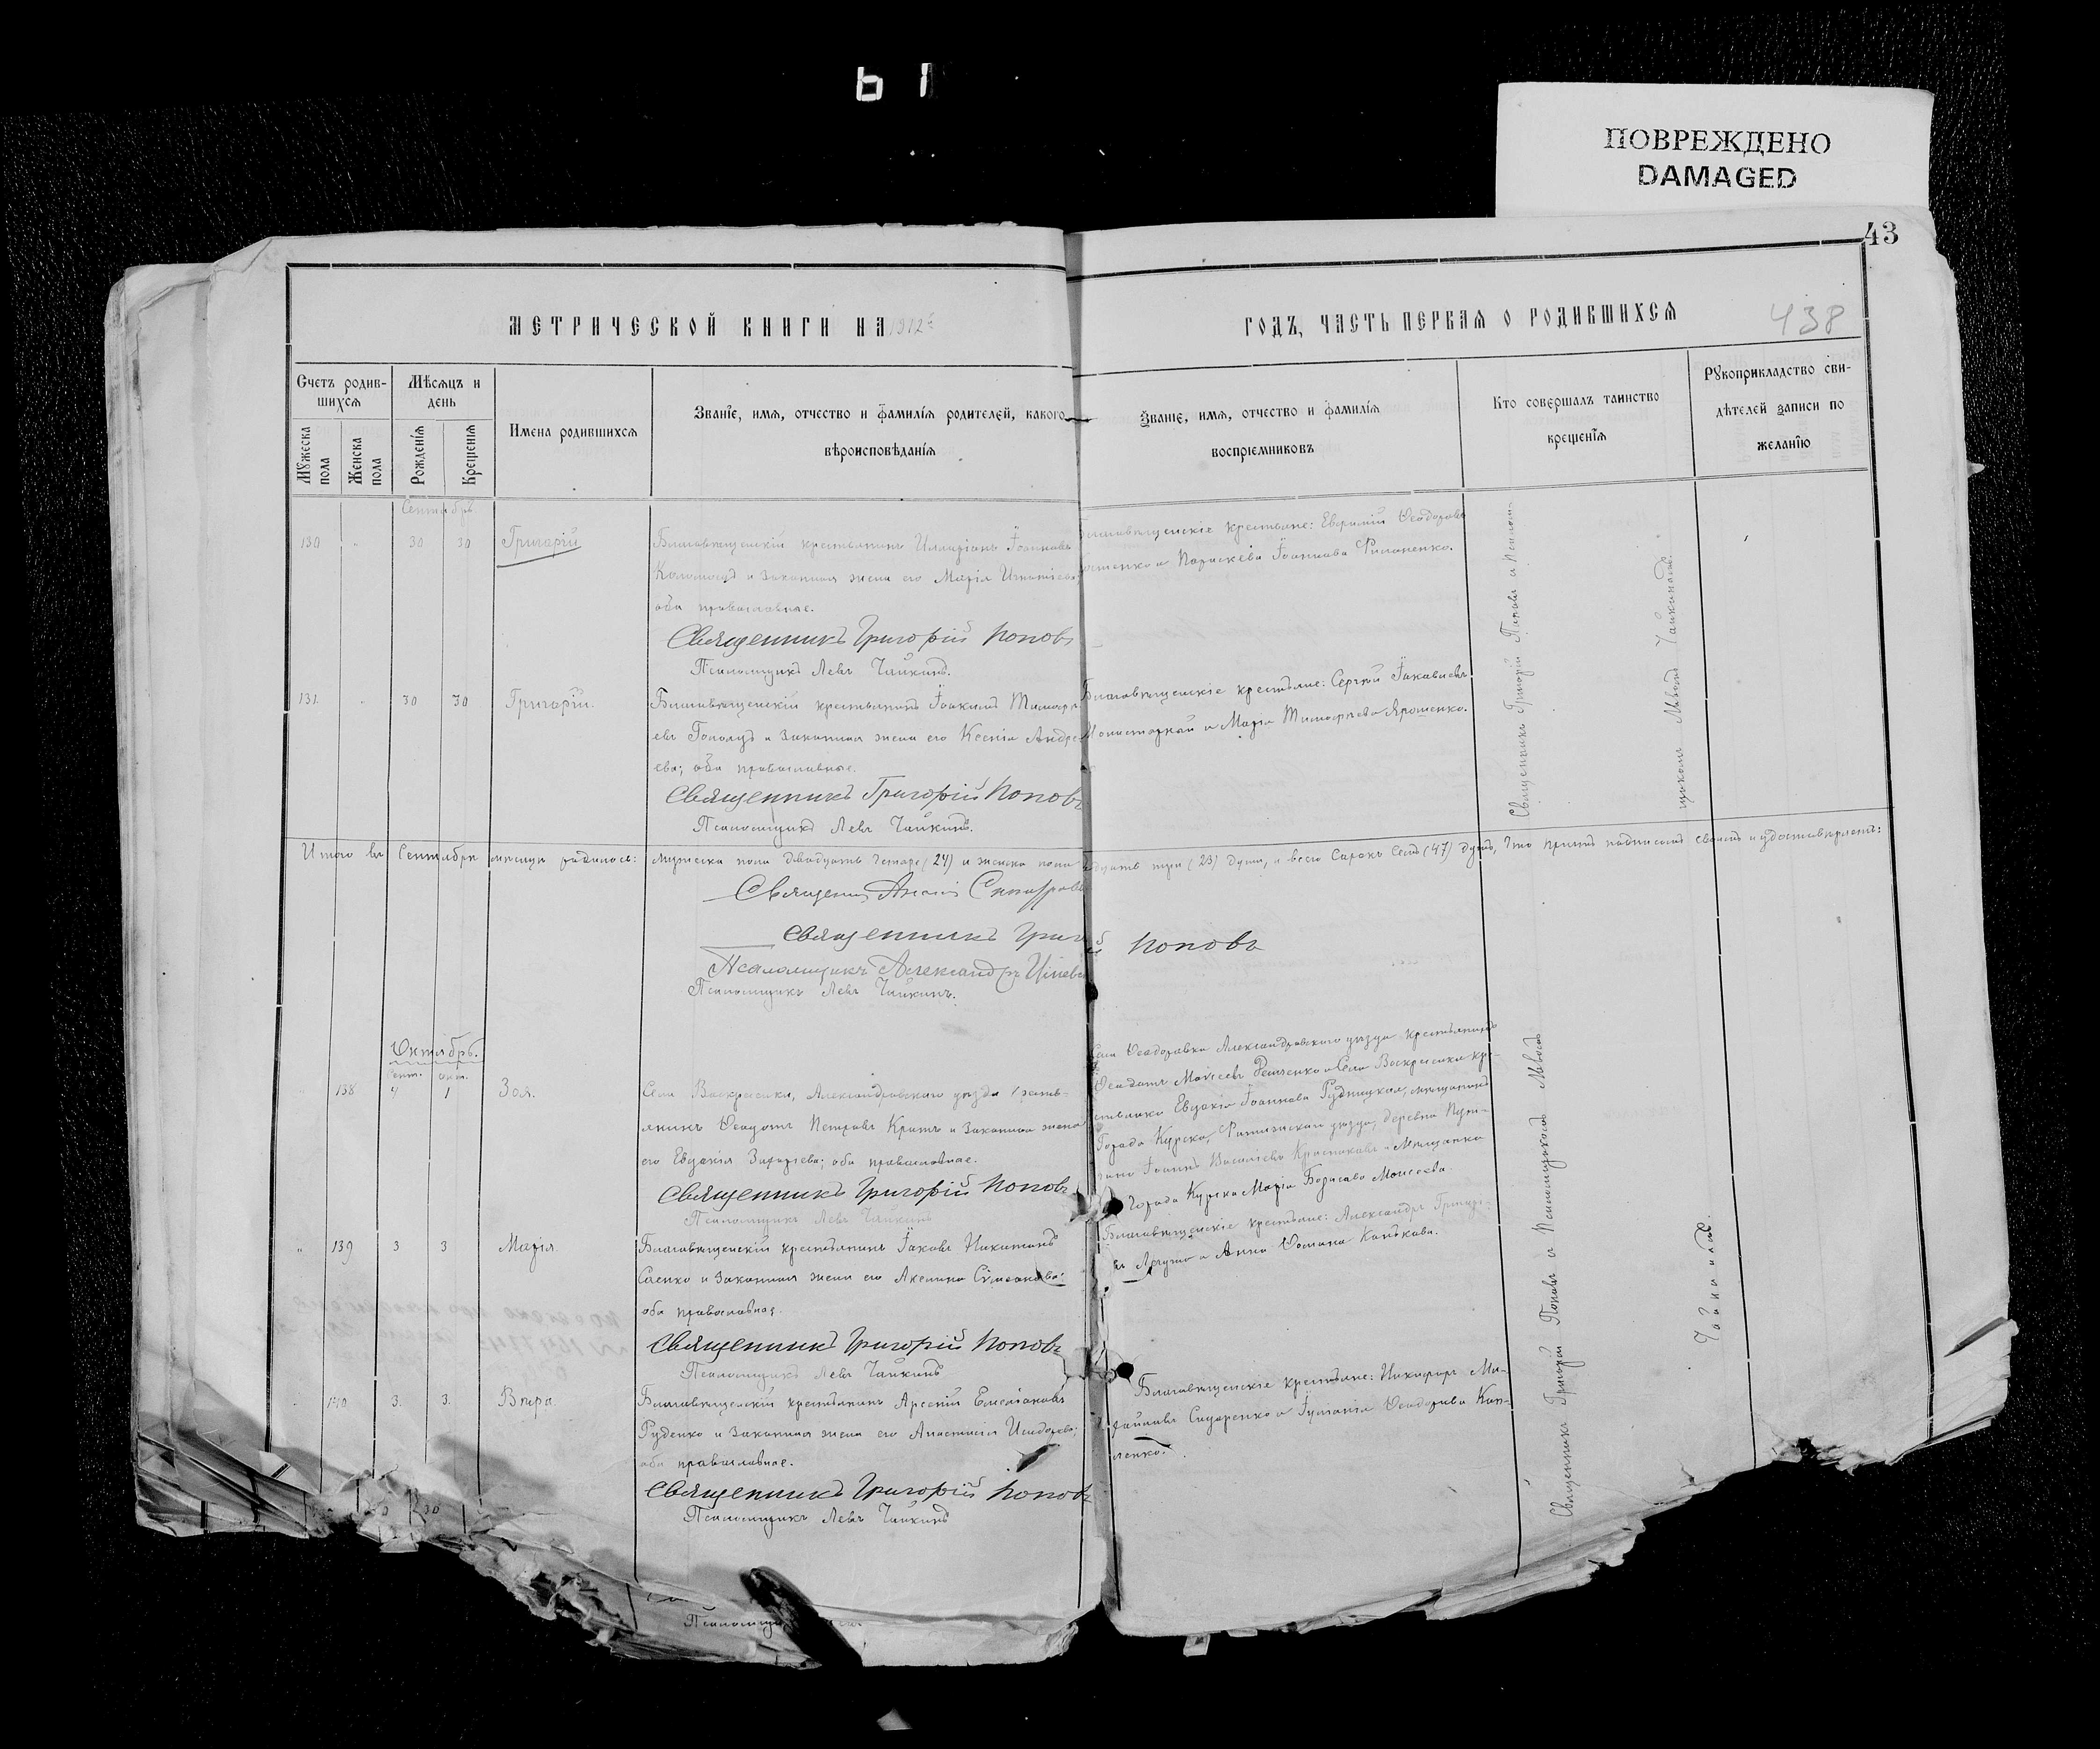 ПОВРЕЖДЕНО
DAMAGED
43
МЕТРИЧЕСКОЙ КНИГИ НА 1912
ГОДЪ, ЧАСТЬ ПЕРВАЯ О РОДИВШИХСЯ
438
Счетъ родив-
шихся
Мѣсяцъ и
день
Мужеска пола
Женска пола
Рожденія
Крещенія
Имена родившихся
Званіе, имя, отчество и фамилія родителей, какого
вѣроисповѣданія
Званіе, имя, отчество и фамилія
воспріемниковъ
Кто совершалъ таинство
крещенія
Рукоприкладство сви-
дѣтелей записи по
желанію
Сентябрь
130 " 30 30 Григорій
Благовѣщенскій крестьянинъ Илларіонъ Іоанновъ
и законная жена его Марія Игнатіева,
оба православные.
Священникъ Григорій Поповъ
Псаломщикъ Левъ Чайкинъ.
Благовѣщенскіе крестьяне: Евфимій Ѳеодоровъ
и Параскева Іоаннова Филоненко.
Священникъ Григорій Поповъ и Псалом-
щикомъ Львомъ Чайкинымъ.
131 " 30 30 Григорій.
Благовѣщенскій крестьянинъ Іоакимъ Тимофѣ-
евъ и законная жена его Ксенія Андре-
ева; оба православные.
Священникъ Григорій Поповъ
Псаломщикъ Левъ Чайкинъ.
Благовѣщенскіе крестьяне: Сергѣй Іакавлевъ
и Марія Тимофѣева Ярошенко.
Итого въ Сентябрѣ мѣсяцѣ родилось: мужеска пола двадцать четыре (24) и женска пола двадцать три (23) души, а всего сорокъ семь (47) душъ, что причтъ подписомъ своимъ и удостовѣряетъ:
Священникъ
Священникъ Григорій Поповъ
Псаломщикъ Александръ
Псаломщикъ Левъ Чайкинъ.
Октябрь.
Сент. Окт.
138 4 1 Зоя.
Села Воскресенки, Александровскаго уѣзда крестья-
нинъ Ѳеодотъ Петровъ Кратъ и законная жена
его Евдокія Захаріева; оба православные.
Священникъ Григорій Поповъ
Псаломщикъ Левъ Чайкинъ
Села Ѳеодоровки Александровскаго уѣзда крестьянинъ
Ѳеодотъ Моисеевъ и Села Воскресенки кре-
стьянка Евдокія Іоаннова Рудницкая, мѣщанинъ
Города Курска, уѣзда, деревни
Іоаннъ Василіевъ и Мѣщанка
Города Курска Марія Борисова Моисеева.
Священникъ Григорій Поповъ и Псаломщикомъ Львомъ
Чайкинымъ.
" 139 3 3 Марія.
Благовѣщенскій крестьянинъ Іаковъ Никитинъ
Саенко и законная жена его Акелина Симеонова;
оба православные.
Священникъ Григорій Поповъ
Псаломщикъ Левъ Чайкинъ
Благовѣщенскіе крестьяне: Александръ Григорі-
евъ и Анна Фомина Конькова.
" 140 3. 3. Вѣра.
Благовѣщенскій крестьянинъ Арсеній Емеліановъ
Руденко и законная жена его Анастасія Исидорова;
оба православные.
Священникъ Григорій Поповъ
Псаломщикъ Левъ Чайкинъ
Благовѣщенскіе крестьяне: Никифоръ Ми-
хайловъ Сидоренко и Іуліанія Ѳеодорова
ленко.
30